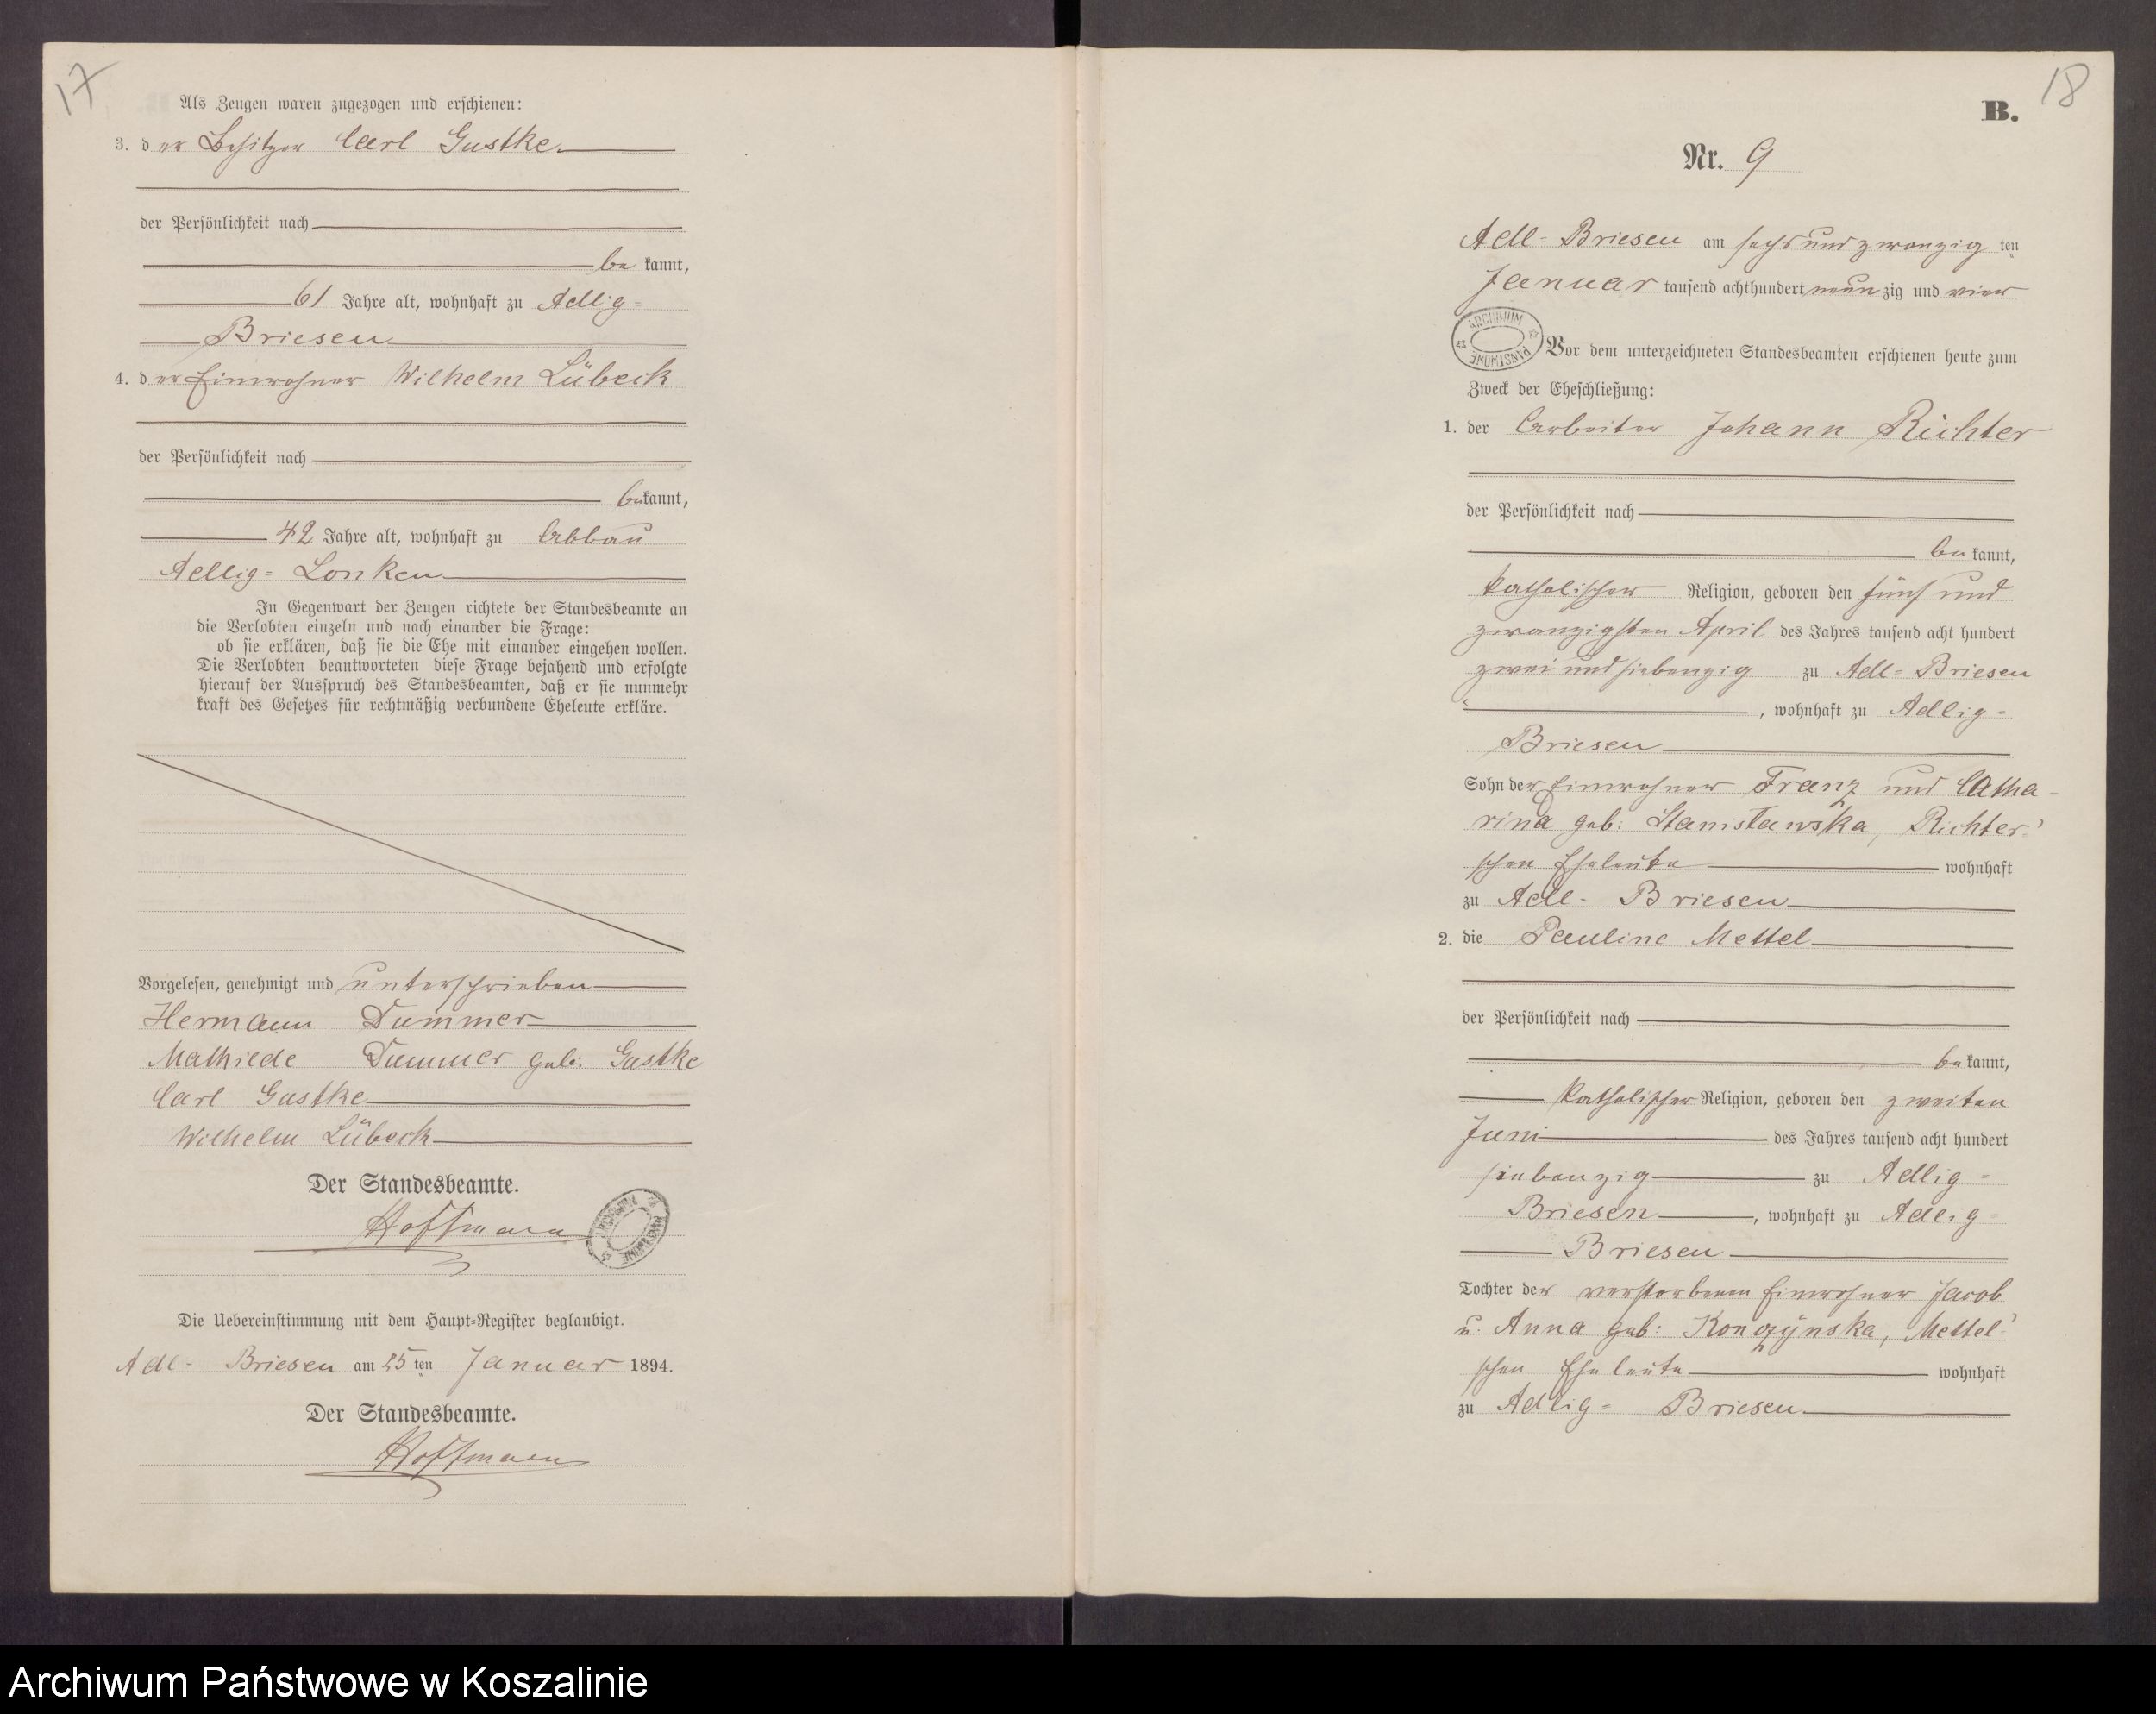 17
Als Zeugen waren zugezogen und erschienen:
3. der Besitzer Carl Gustke
der Persönlichkeit nach
be kannt,
61 Jahre alt, wohnhaft zu Adlig-
Briesen
4. der Einwohner Wilhelm Lübeck
der Persönlichkeit nach
bekannt,
42 Jahre alt, wohnhaft zu Abbau
Adlig- Lonken
In Gegenwart der Zeugen richtete der Standesbeamte an
die Verlobten einzeln und nach einander die Frage:
ob sie erklären, daß sie die Ehe mit einander eingehen wollen.
Die Verlobten beantworteten diese Frage bejahend und erfolgte
hierauf der Ausspruch des Standesbeamten, daß er sie nunmehr
kraft des Gesetzes für rechtmäßig verbundene Eheleute erkläre.
Vorgelesen, genehmigt und unterschrieben
Hermann Dummer
Mathilde Dummer geb: Gustke
Carl Gustke
Wilhelm Lübeck
Der Standesbeamte.
Hoffmann
Die Uebereinstimmung mit dem Haupt-Register beglaubigt.
Adl- Briesen am 25 ten Januar 1894.
Der Standesbeamte.
Hoffmann
18
B.
Nr. 9
Adl- Briesen am sechs und zwanzig ten
Januar tausend achthundert neun zig und vier
ARCHIWUM PAŃSTWOWE
Vor dem unterzeichneten Standesbeamten erschienen heute zum
Zweck der Eheschließung:
1. der Arbeiter Johann Richter
der Persönlichkeit nach
be kannt,
katholischer Religion, geboren den fünf und
zwanzigsten April des Jahres tausend acht hundert
zwei und siebenzig zu Adl- Briesen
, wohnhaft zu Adlig-
Briesen
Sohn der Einwohner Franz und Catha-
rina geb: Stanisławska, Richter'
schen Eheleute wohnhaft
zu Adl- Briesen
2. die Pauline Mettel
der Persönlichkeit nach
be kannt,
katholischer Religion, geboren den zweiten
Juni des Jahres tausend acht hundert
siebenzig zu Adlig-
Briesen, wohnhaft zu Adlig-
Briesen
Tochter der verstorbenen Einwohner Jacob
u. Anna geb: Konczynska, Mettel'
schen Eheleute wohnhaft
zu Adlig- Briesen
Archiwum Państwowe w Koszalinie